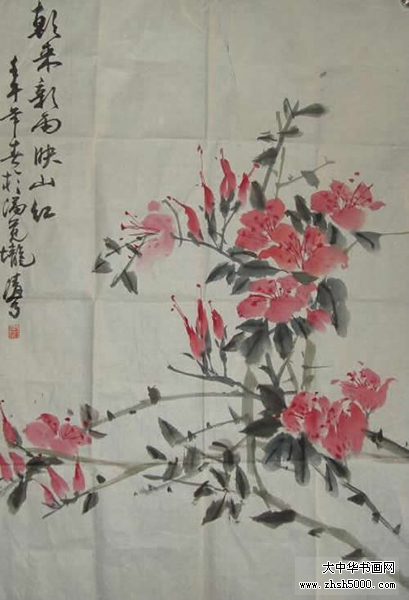 朝来新雨映山红
壬午年春於
大中华书画网
www.zhsh5000.com